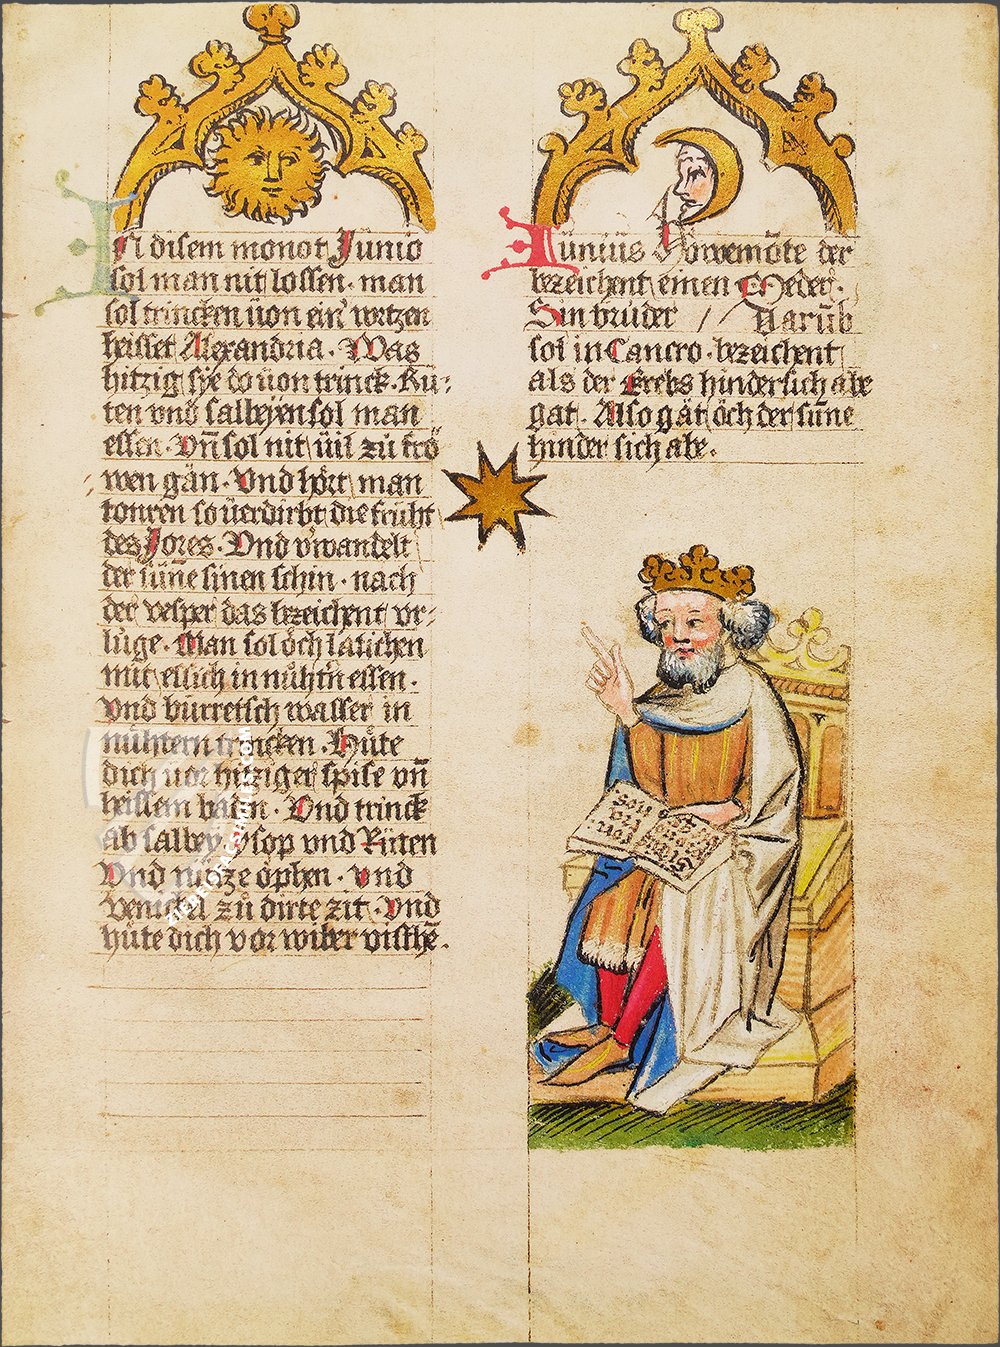 In disem monot Junio
sol man nit lossen · man
sol trincken üon ein' wrtzen
heisset Alexandria · Was
hitzig sÿe do üon trinck · Ru-
ten vnd salbeÿen sol man
essen · Vn̄ sol nit üil zu frö
wen gän · Vnd hört man
tonren so üerdirbt die früht
des Jores · Vnd v'wandelt
der sun̄e sinen schin · nach
der vesper das bezeichent vr-
luge · Man sol öch latichen
mit essich in nüht'n essen ·
Vnd burretsch wasser in
nühtern trincken · Hüte
dich üor hitziger spise vn̄
heissem baden · Vnd trinck
ab salbey ysop vnd Rüten
Vnd ophen · vnd
Venickel zü dirre zit · Vnd
hüte dich vor wiber
Junius Höwemöte der
bezeichent einen Meder ·
Sin brüder / / Darüb
sol in Cancro · bezeichent
als der Krebs hindersich abe
gat · Also gät öch der sun̄e
hinder sich abe ·